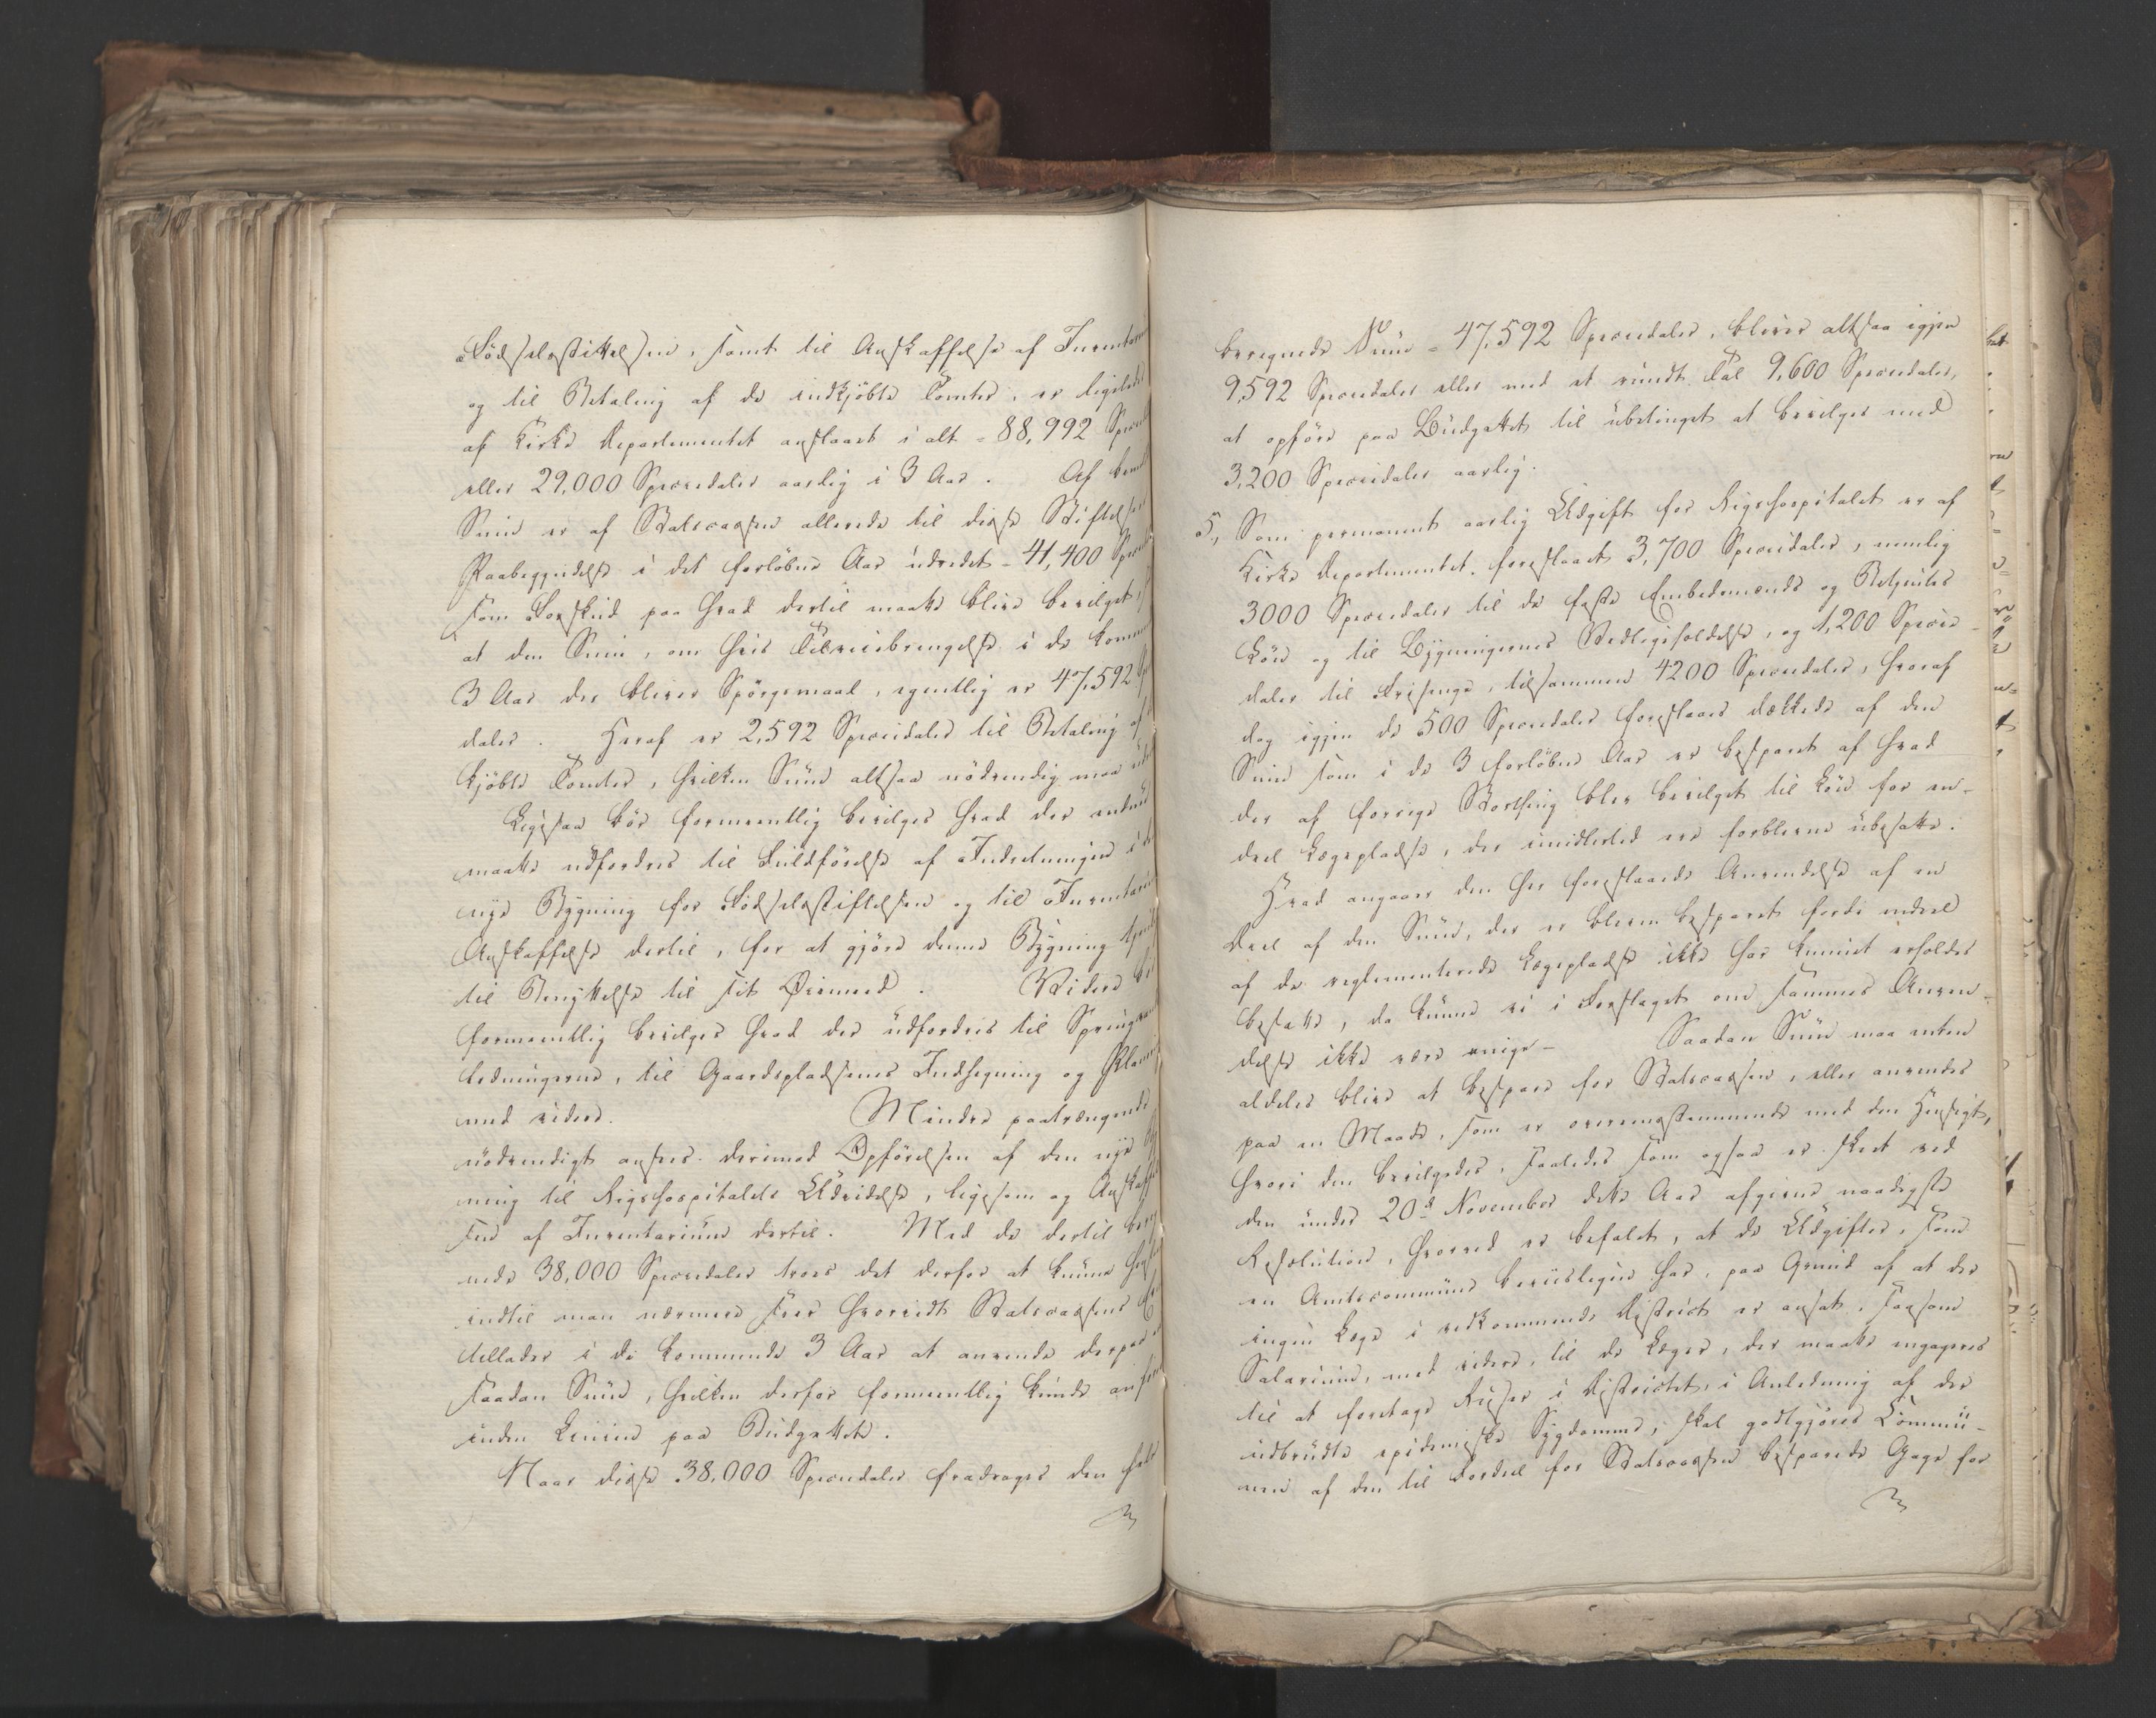 Fødselsstiftelsen, samt til Anskaffelse af Inventarium
og til Betaling af de indkjöbte Tomter, er ligeledes
af Kirke Departementet anslaaet i alt = 88,992 Specie
eller 29,000 Speciedaler aarlig i 3 Aar. Af bemeldte
Sum er af Statscassen allerede til disse Stiftelsers
Paabegyndelse i det forløbne Aar udredet = 41,400 Specied
som Forskud paa hvad dertil maatte blive bevilget,
at den Sum, om hvis Tilveiebringelse i de kommende
3 Aar der bliver Spörgsmaal, egentlig er 47,592 Spe
daler. Heraf er 2,592 Speciedaler til Betaling af
kjöbte Tomter, hvilken Sum altsaa nödvendig maa
Ligesaa bør formeentlig bevilges hvad der endnu
maatte udfordres til Fuldförelse af Indretningen i
nye Bygning for Födselsstiftelsen og til Inventarii
Anskaffelse dertil, for at gjöre denne Bygning tjenlig
til Benyttelse til sit Øiemeed. Videre bør
formeentlig bevilges hvad der udfordres til Springvand
ledningerne, til Gaardspladsenes Indhegning og Plan
med videre. Mindre paatrængende
nödvendigt ansees derimod Opförelsen af den nye Byg
ning til Rigshospitalets Udvidelse, ligesom og Anskaffel
sen af Inventarium dertil. Med de dertil bereg
nede 38,000 Speciedaler troes det derfor at kunne
indtil man nærmere seer hvorvidt Statscassens
tillader i de kommende 3 Aar at anvende derpaa
saadan Sum, hvilken derfor formeentlig kunde anføres
inden Linien paa Budgettet.
Naar disse 38,000 Speciedaler fradrages den hele
beregnede Sum = 47,592 Speciedaler, bliver altsaa igjen
9,592 Speciedaler eller med et rundt Tal 9,600 Speciedaler,
at opföre paa Budgettet til ubetinget at bevilges med
3,200 Speciedaler aarlig.
5, Som permanent aarlig Udgift for Rigshospitalet er af
Kirke Departementet foreslaaet 3,700 Speciedaler, nemlig
3000 Speciedaler til de faste Embedsmænds og Betjentes
Lön og til Bygningernes Vedligeholdelse, og 1,200 Specie-
daler til Frisenge, tilsammen 4200 Speciedaler, hvoraf
dog igjen de 500 Speciedaler foreslaaes dækkede af den
Sum som i de 3 forløbne Aar er besparet af hvad
der af forrige Storthing blev bevilget til Lön for en-
deel Lægepladse, der imidlertid ere forblevne ubesatte.
Hvad angaaer den her foreslaaede Anvendelse af en
Deel af den Sum, der er bleven besparet fordi endeel
af de reglementerede Lægepladse ikke har kunnet erholdes
besatte, da kunne vi i Forslaget om sammes Anven-
delse ikke være enige - Saadan Sum maa enten
aldeles blive at bespare for Statscassen, eller anvendes
paa en Maade, som er overeensstemmende med den Hensigt,
hvori den bevilgedes, saaledes som ogsaa er skeet ved
den under 20de November dette Aar afgivne naadigste
Resolution, hvorved er befalet, at de Udgifter, som
en Amtscommune beviisligen har, paa Grund af at der
ingen Læge i vedkommende District er ansat, saasom
Salarium, med videre, til de Læger, der maatte engageres
til at foretage Reiser i Districtet, i Anledning af der
udbrudte epidemiske Sygdomme, skal godtgjöres Commu-
nen af den til Fordeel for Statscassen besparede Gage for